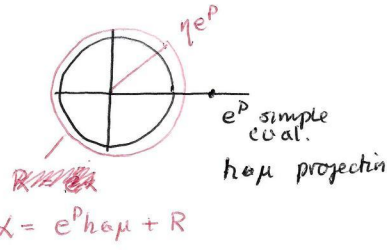 ηe^P
e^P simple
eval.
h⊗μ projectin
α = e^P h⊗μ + R